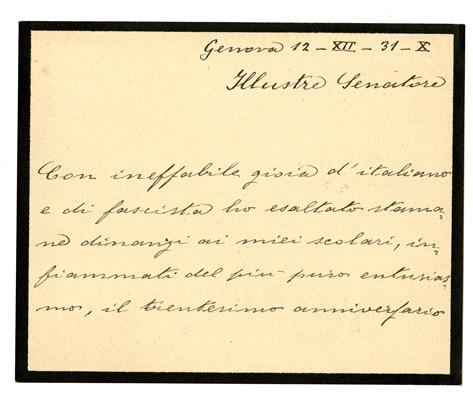 Genova 12 - XII - 31 - X
Illustre Senatore
Con ineffabile gioia d'italiano
e di fascista ho esaltato stama=
ne dinanzi ai miei scolari, in=
fiammati del piu puro entusias=
mo, il trentesimo anniversario